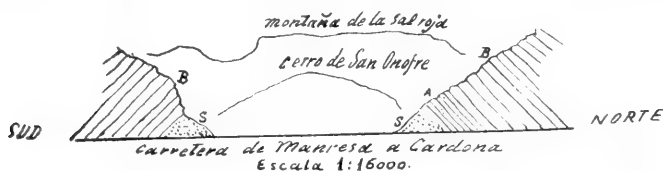 montaña de la sal roja
B
cerro de San Onofre
B
A
S
S
SUD
NORTE
Carretera de Manresa a Cardona
Escala 1:16000.